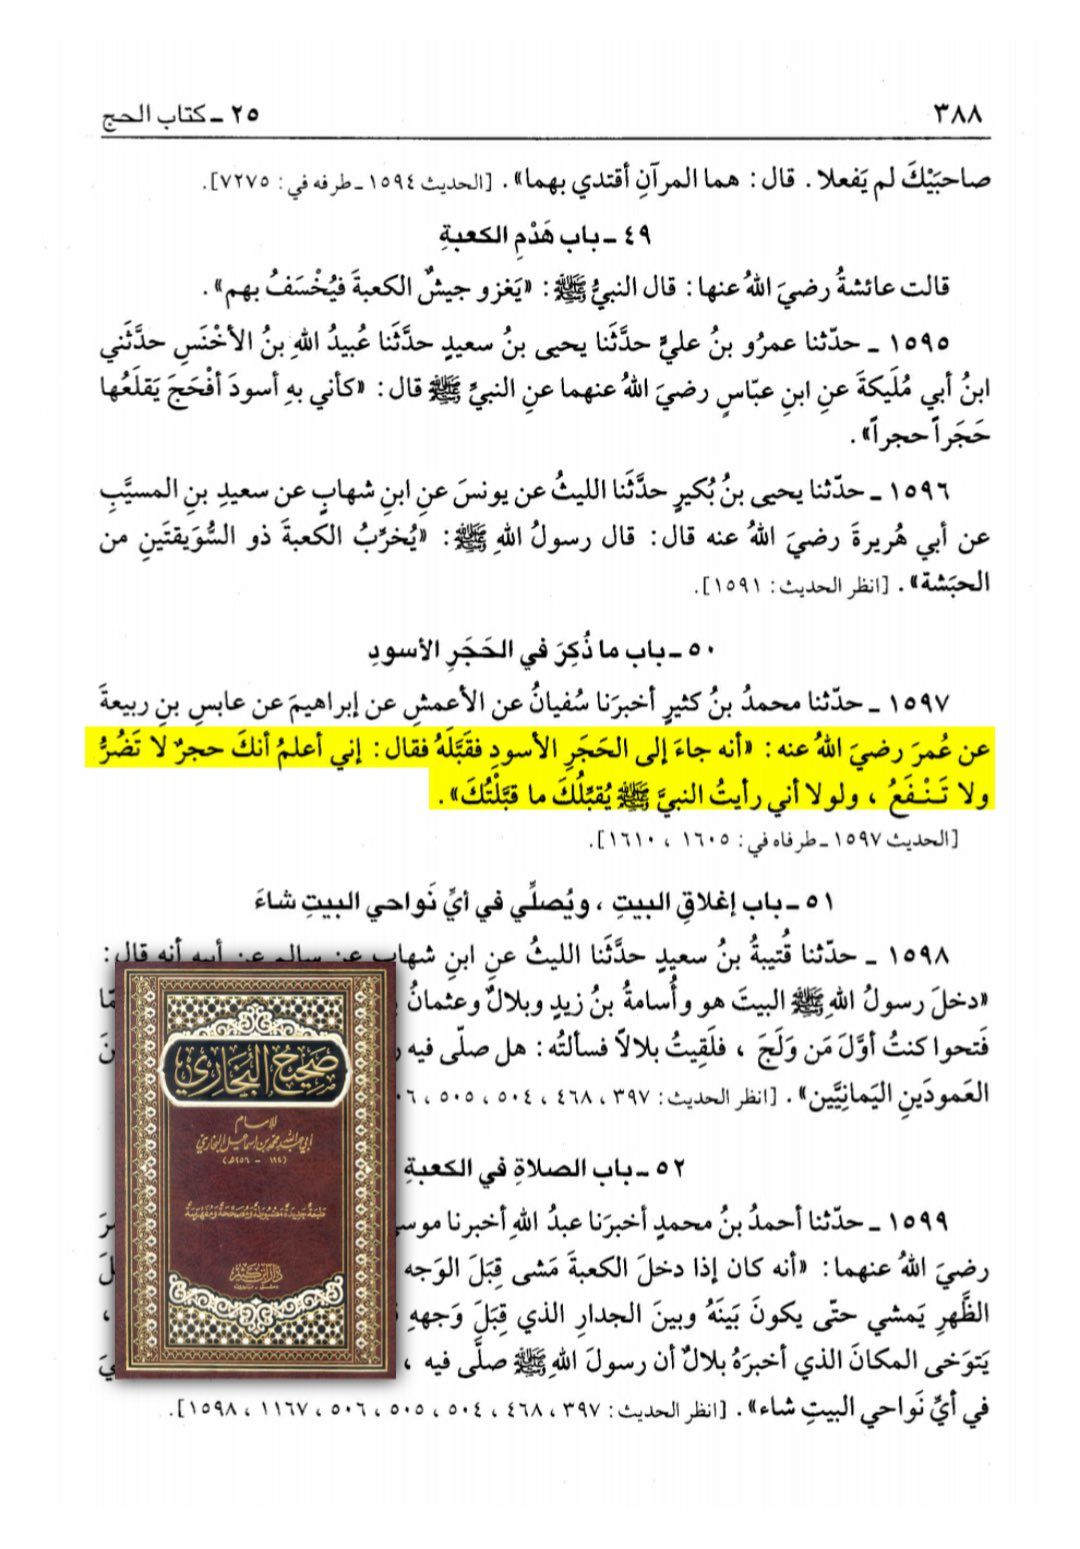 ٣٨٨
٢٥ ـ كتاب الحج
صاحبَيْكَ لم يَفعلا. قال: هما المرآنِ أقتدي بهما». [الحديث ١٥٩٤ ـ طرفه في: ٧٢٧٥].
٤٩ ـ باب هَدْمِ الكعبةِ
قالت عائشةُ رضيَ اللهُ عنها: قال النبيُّ ﷺ: «يَغزو جيشٌ الكعبةَ فيُخْسَفُ بهم».
١٥٩٥ ـ حدّثنا عمرُو بنُ عليٍّ حدَّثَنا يحيى بنُ سعيدٍ حدَّثَنا عُبيدُ اللهِ بنُ الأخْنَسِ حدَّثَني
ابنُ أبي مُلَيكةَ عنِ ابنِ عبّاسٍ رضيَ اللهُ عنهما عنِ النبيِّ ﷺ قال: «كأني بهِ أسودَ أفْحَجَ يَقلَعُها
حَجَراً حجراً».
١٥٩٦ ـ حدّثنا يحيى بنُ بُكيرٍ حدَّثَنا الليثُ عن يونسَ عنِ ابنِ شهابٍ عن سعيدِ بنِ المسيَّبِ
عن أبي هُريرةَ رضيَ اللهُ عنه قال: قال رسولُ اللهِ ﷺ: «يُخرِّبُ الكعبةَ ذو السُّوَيقتَينِ من
الحبَشة». [انظر الحديث: ١٥٩١].
٥٠ ـ باب ما ذُكِرَ في الحَجَرِ الأسودِ
١٥٩٧ ـ حدّثنا محمدُ بنُ كثيرٍ أخبرَنا سُفيانُ عن الأعمشِ عن إبراهيمَ عن عابسِ بنِ ربيعةَ
عن عُمرَ رضيَ اللهُ عنه: «أنه جاءَ إلى الحَجَرِ الأسودِ فقَبَّلَهُ فقال: إني أعلمُ أنكَ حجرٌ لا تَضُرُّ
ولا تَنْفَعُ، ولولا أني رأيتُ النبيَّ ﷺ يُقبِّلُكَ ما قبَّلْتُكَ».
[الحديث ١٥٩٧ ـ طرفاه في: ١٦٠٥، ١٦١٠].
٥١ ـ باب إغلاقِ البيتِ، ويُصلِّي في أيِّ نَواحي البيتِ شاءَ
١٥٩٨ ـ حدّثنا قُتيبةُ بنُ سعيدٍ حدَّثَنا الليثُ عنِ ابنِ شهابٍ عن سالمٍ عن أبيهِ أنه قال:
«دخلَ رسولُ اللهِ ﷺ البيتَ هو وأُسامةُ بنُ زيدٍ وبلالٌ وعثمانُ
فَتحوا كنتُ أوَّلَ مَن وَلَجَ، فلَقِيتُ بلالاً فسألتُه: هل صلّى فيه
العَمودَينِ اليَمانِيَّين». [انظر الحديث: ٣٩٧، ٤٦٨، ٥٠٤، ٥٠٥،
٥٢ ـ باب الصلاةِ في الكعبةِ
١٥٩٩ ـ حدّثنا أحمدُ بنُ محمدٍ أخبرَنا عبدُ اللهِ أخبرنا
رضيَ اللهُ عنهما: «أنه كان إذا دخلَ الكعبةَ مَشى قِبَلَ الوَجه
الظَّهرِ يَمشي حتّى يكونَ بَينَهُ وبينَ الجدارِ الذي قِبَلَ وَجههِ
يَتوَخى المكانَ الذي أخبرَهُ بلالٌ أن رسولَ اللهِ ﷺ صلَّى فيه،
في أيِّ نَواحي البيتِ شاء». [انظر الحديث: ٣٩٧، ٤٦٨، ٥٠٤، ٥٠٥، ٥٠٦، ١١٦٧، ١٥٩٨].
صَحِيحُ البُخَارِي
للإمام
أبي عبد الله محمد بن إسماعيل البخاري
(١٩٤ - ٢٥٦هـ)
طبعة جديدة مضبوطة ومصححة ومفهرسة
دار ابن كثير
دمشق - بيروت